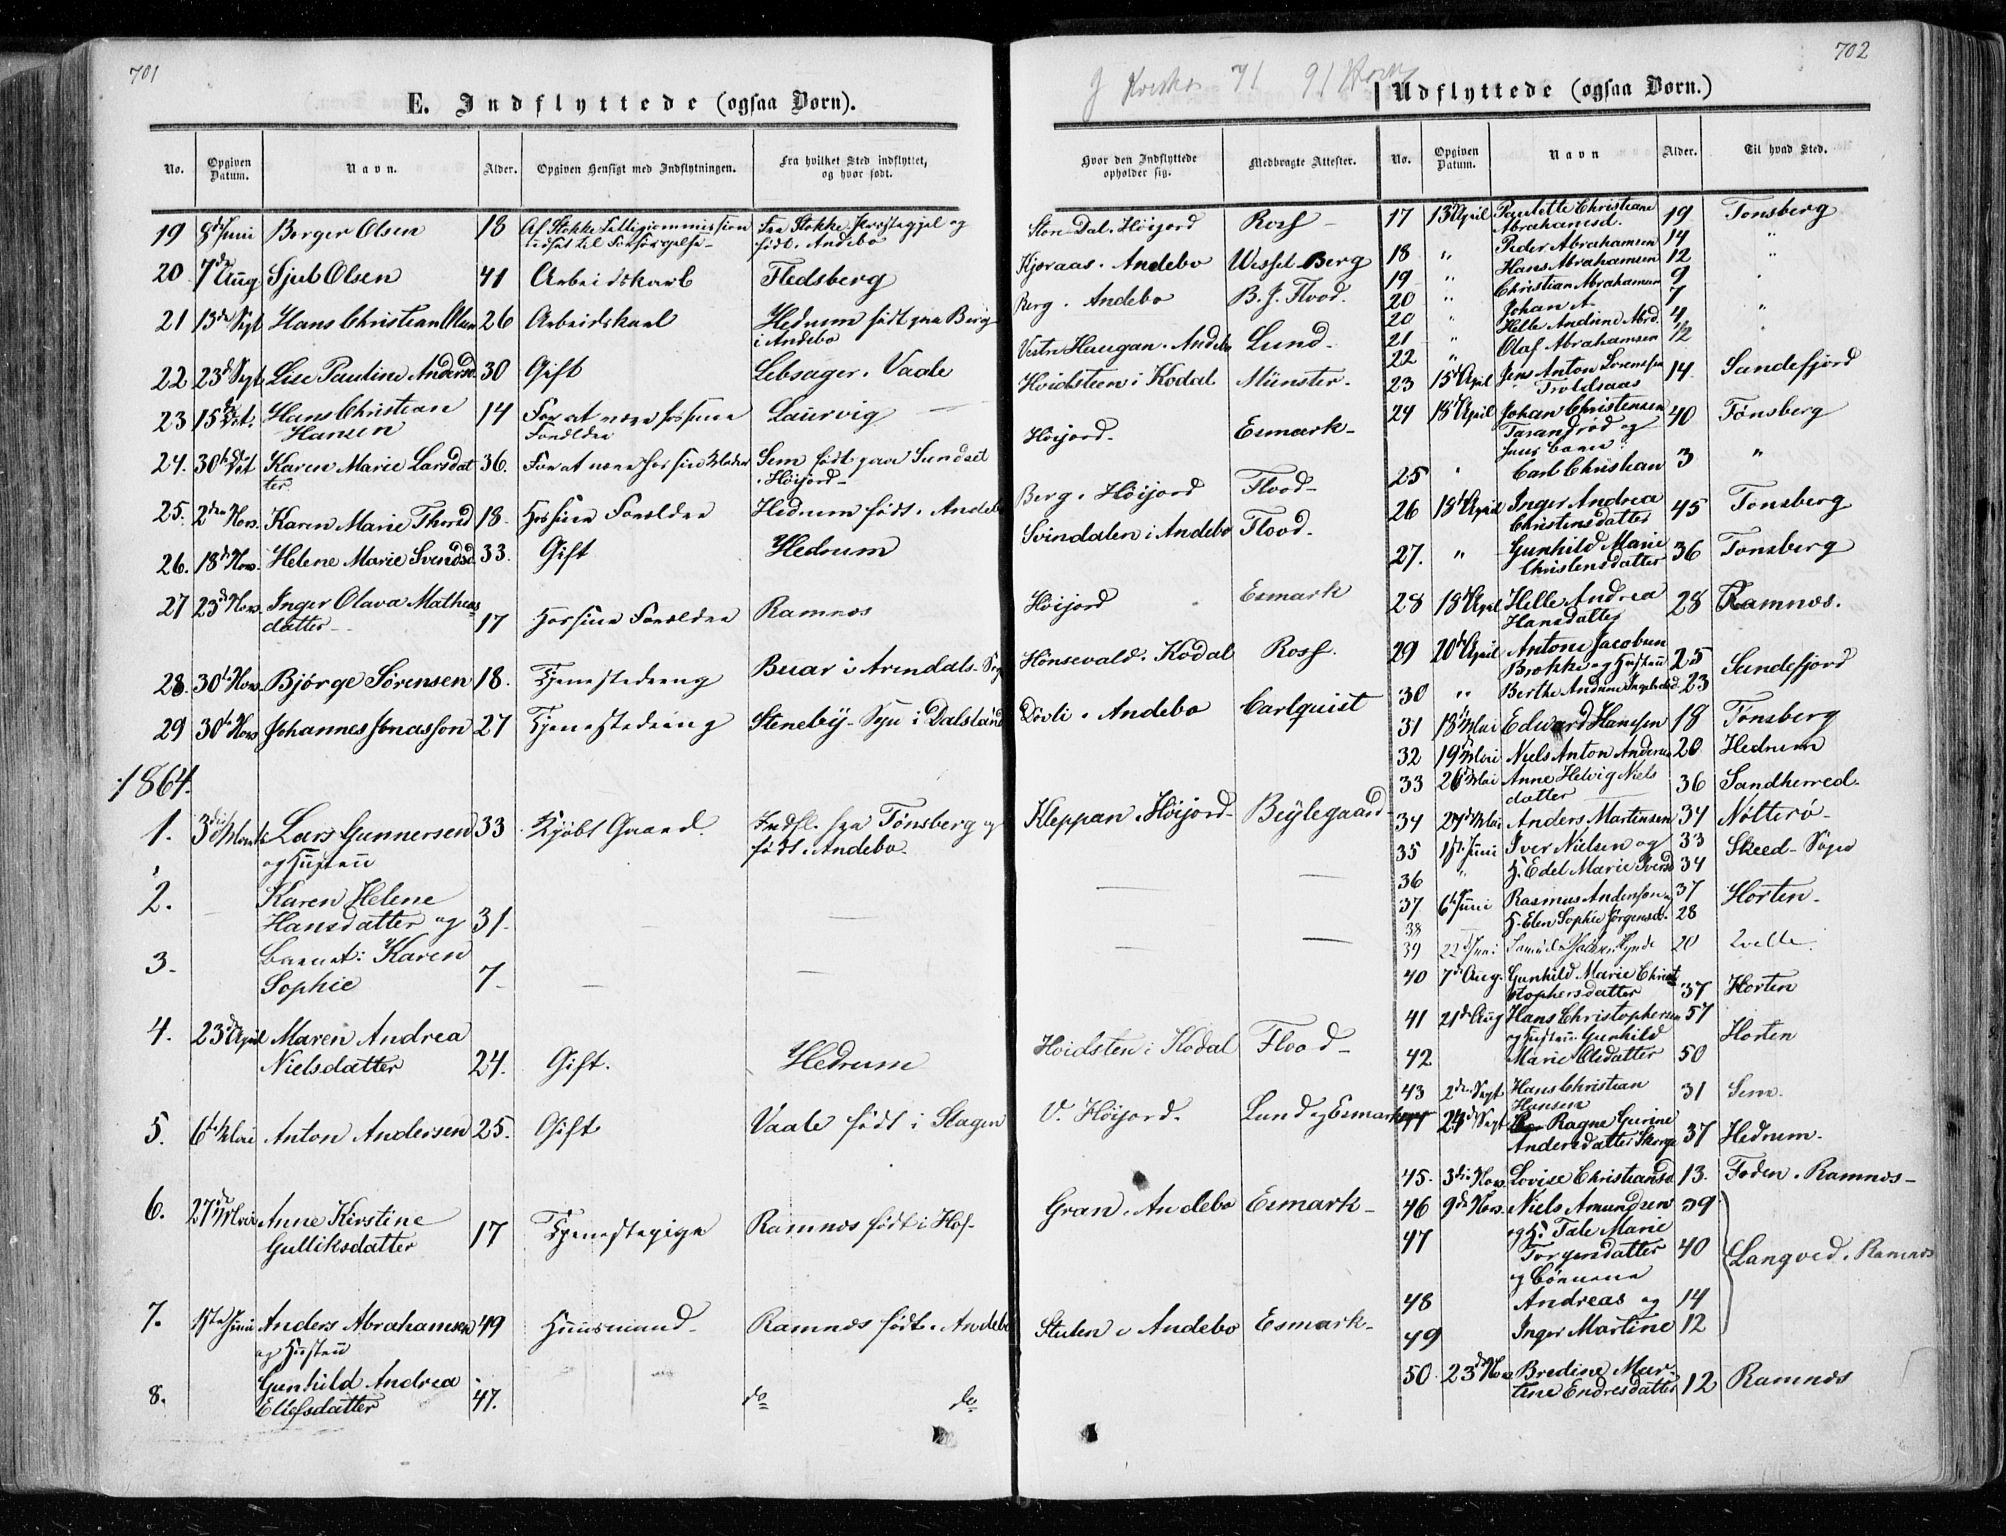 701
E. Indflyttede (ogsaa Børn).
No. Opgiven Datum. Navn. Alder. Opgiven Hensigt med Indflytningen. Fra hvilket Sted indflyttet, og hvor født.
19 8de Juni Berger Olsen 18 Af Stokke Fattigcommission udsat til Forsørgelse Fra Stokke Præstegjel og født i Andebo
20 7de Aug Sjul Olsen 41 Arbeidskarl Flesberg
21 13de Sept Hans Christian Olsen 26 Arbeidskarl Hedrum født paa Berg i Andebo
22 23d Sept Lise Pauline Andersd 30 Gift Lebsager i Vaale
23 15de Oct. Hans Christian Hansen 14 For at være hos sine Forældre Laurvig
24. 30te Oct Karen Marie Larsdatter 36. For at være hos sin Moder Sem født paa Sundset i Høijord
25. 2den Nov. Karen Marie Thorsd 18. Hos sine Forældre Hedrum født i Andebo
26. 18de Nov. Helene Marie Svendsd. 33. Gift Hedrum
27 23de Nov. Inger Olava Matheasdatter 17 Hos sine Forældre Ramnæs
28. 30te Nov. Bjørge Sørensen 18. Tjenestedreng Buar i Arendals Sogn
29 30te Nov Johannes Jonasson 27 Tjenestedreng Steneby Sogn i Dalsland
1864.
1. 3die Marts Lars Gunnersen og Hustru 33 Kjøbt Gaard. Indfl. fra Tønsberg og født i Andebo.
2. Karen Helene Hansdatter og 31.
3. Barnet: Karen Sophie 7
4. 23de April Maren Andrea Nielsdatter 24. Gift. Hedrum
5. 6te Mai Anton Andersen 25. Gift Vaale født i Slagen
6. 27de Mai Anne Kirstine Gulliksdatter 17 Tjenestepige Ramnæs født i Hof
7. 1ste Juni Anders Abrahamsen og Hustru 49 Huusmand Ramnæs født i Andebo
8. Gunhild Andrea Ellefsdatter 47. do do
702
Udflyttede (ogsaa Børn.)
Hvor den Indflyttede opholder sig. Medbragte Attester. No. Opgiven Datum. Navn Alder. Til hvad Sted.
Store Dal i Høijord Rosf
Kjøraas i Andebo Wessel Berg
Berg i Andebo B. J. Flood.
Vestre Haugan i Andebo Lund
Hvidsteen i Kodal Münster
Høijord Esmark
Berg i Høijord Flood
Svindalen i Andebo Flood.
Høijord Esmark
Hønsevald i Kodal Rosf.
Døvli i Andebo Carlquist
Kleppan i Høijord Beylegaard
Hvidsten i Kodal Flood
V. Høijord. Lund og Esmark
Gran i Andebo Esmark
Stulen i Andebo Esmark
17 13de April Paulette Christiane Abrahamsd. 19 Tønsberg
18 " Peder Abrahamsen 14 "
19 " Hans Abrahamsen 12 "
20 " Christian Abrahamsen 9
20 " Johan A 7 "
21 " Helle Andrine Abrd. 4
22 " Olaf Abrahamsen 1/2
23 15de April Jens Anton Sørensen Troldsaas 14 Sandefjord
24 18de April Johan Christensen Tarandrød og hans Barn 40 Tønsberg
25 " Carl Christian 3 "
26 18de April Inger Andrea Christensdatter 45 Tønsberg
27. " Gunhild Marie Christensdatter 36 Tønsberg
28 18de April Helle Andrea Hansdatter 28 Ramnæs.
29 20de April Antoni Jacobsen Brekke og Hustru 25 Sandefjord
30 " Berthe Andrine Ingebretsd 23
31 18de Mai Edward Hansen 18 Tønsberg
32 19de Mai Niels Anton Andersen 20 Hedrum
33 26de Mai Anne Helvig Nielsdatter 36 Sandherred
34 27de Mai Anders Martinsen 34 Nøtterø
35 1ste Juni Iver Nielsen og 33 Skeed Sogn
36 " H. Edel Marie Iversd 34
37 6te Juni Rasmus Andersen og 37 Horten
38 H. Elen Sophie Jørgensd. 28
39 22de Juni 20
40 7de Aug. Gunhild Marie Christophersdatter 37 Horten
41 21de Aug Hans Christophersen og Hustru Gunhild 57 Horten
42 Marie Olsdatter 50
43 2den Sept Hans Christian Hansen 31 Sem.
44 24de Sept Ragne Gurine Andersdatter Skorge 37 Hedrum
45. 3die Nov. Lovise Christiansd 13. Foden i Ramnæs
46 9de Nov. Niels Amundsen 39
47 og H. Tale Marie Torgersdatter og Børnene 40 Langved i Ramnæs
48 Andreas og 14
49 Inger Martine 12
50 23de Nov Bredine Martine Endresdatter 12 Ramnæs